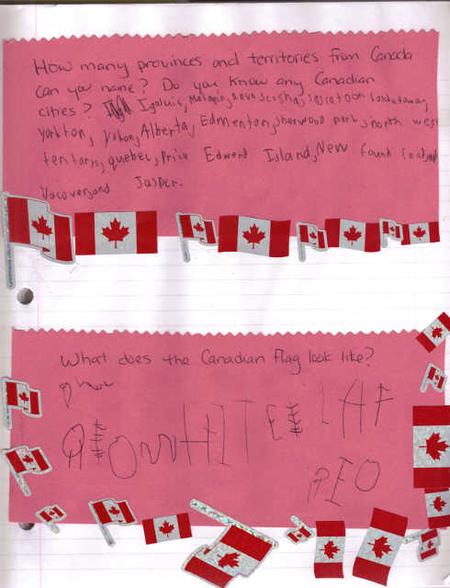 How many provinces and territories from Canada
can you name? Do you know any Canadian
cities? Igaluit, Nova scosha, sascatoon
yorkton, yukon, Alberta, Edmenton, sherwood park, north west
teritoris, quebec, Prins Edward Island, New found land,
Vacover, and Jasper.
What does the Canadian flag look like?
WHITE LAF
REO